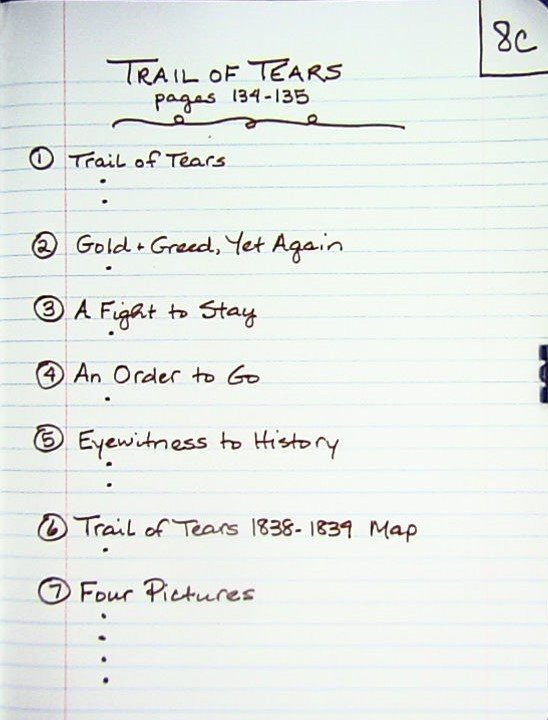 8C
TRAIL OF TEARS
pages 134-135
① Trail of Tears
•
•
② Gold + Greed, Yet Again
•
③ A Fight to Stay
•
④ An Order to Go
•
⑤ Eyewitness to History
•
•
⑥ Trail of Tears 1838-1839 Map
•
⑦ Four Pictures
•
•
•
•